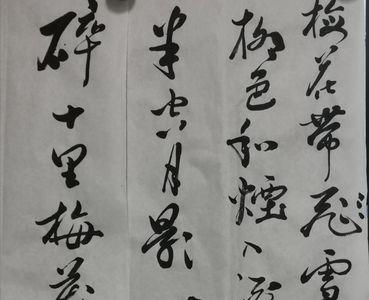 梅花帶飛雪
柳色和煙入酒
半窗月影
碎十里梅花